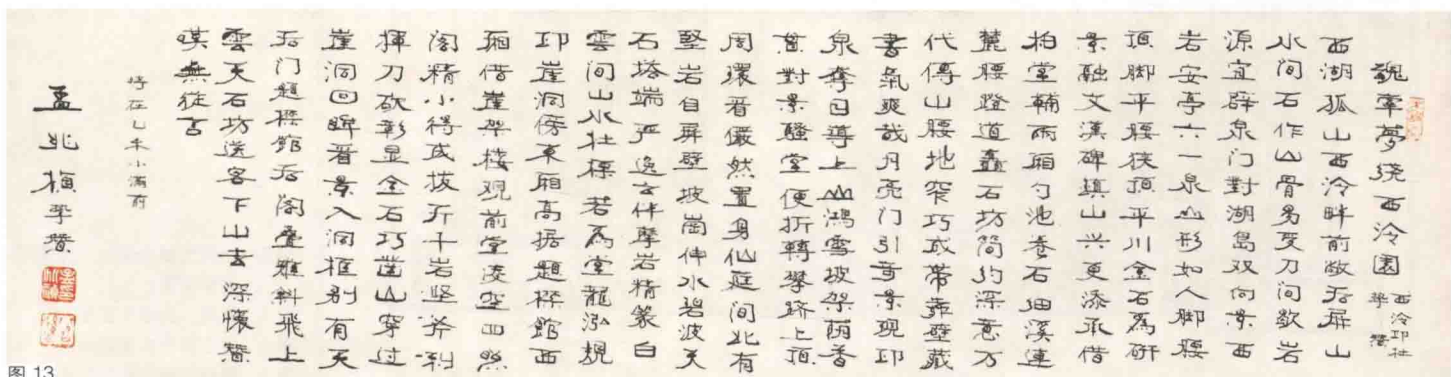 魂牽夢绕西泠園 西泠印社
西湖孤山西泠畔前敞后屏山
水间石作山骨易受刀间欹岩
源宜辟泉门對湖島双向景西
岩安亭六一泉山形如人脚腰
頂脚平腰狭頂平川金石為研
景融文漢碑鎮山兴更添承借
柏堂輔两厢勺池叠石细溪連
麓腰蹬道矗石坊简约深意万
代傳山腰地窄巧成带靠壁藏
書氣爽哉月亮门引奇景現印
泉奪目導上山鴻雪坡架荫香
對景騷堂便折轉攀跻上頂
周環看儼然置身仙庭间北有
堅岩自屏壁坡崗伴水碧波天
石塔端严逸古伴摩岩精篆白
雲间山水社標若為堂龍泓規
印崖洞傍東厢高据題襟館西
厢借崖架楼观前堂凌空四照
阁精小得成拔斤千岩竖斧劈
揮刀砍彰显金石巧凿山穿过
崖洞回眸看景入洞框别有天
后门題襟館后阁叠雅料飛上
雲天石坊送客下山去深懷贊
嘆無從言
時在乙未小满前
孟兆禎
图 13